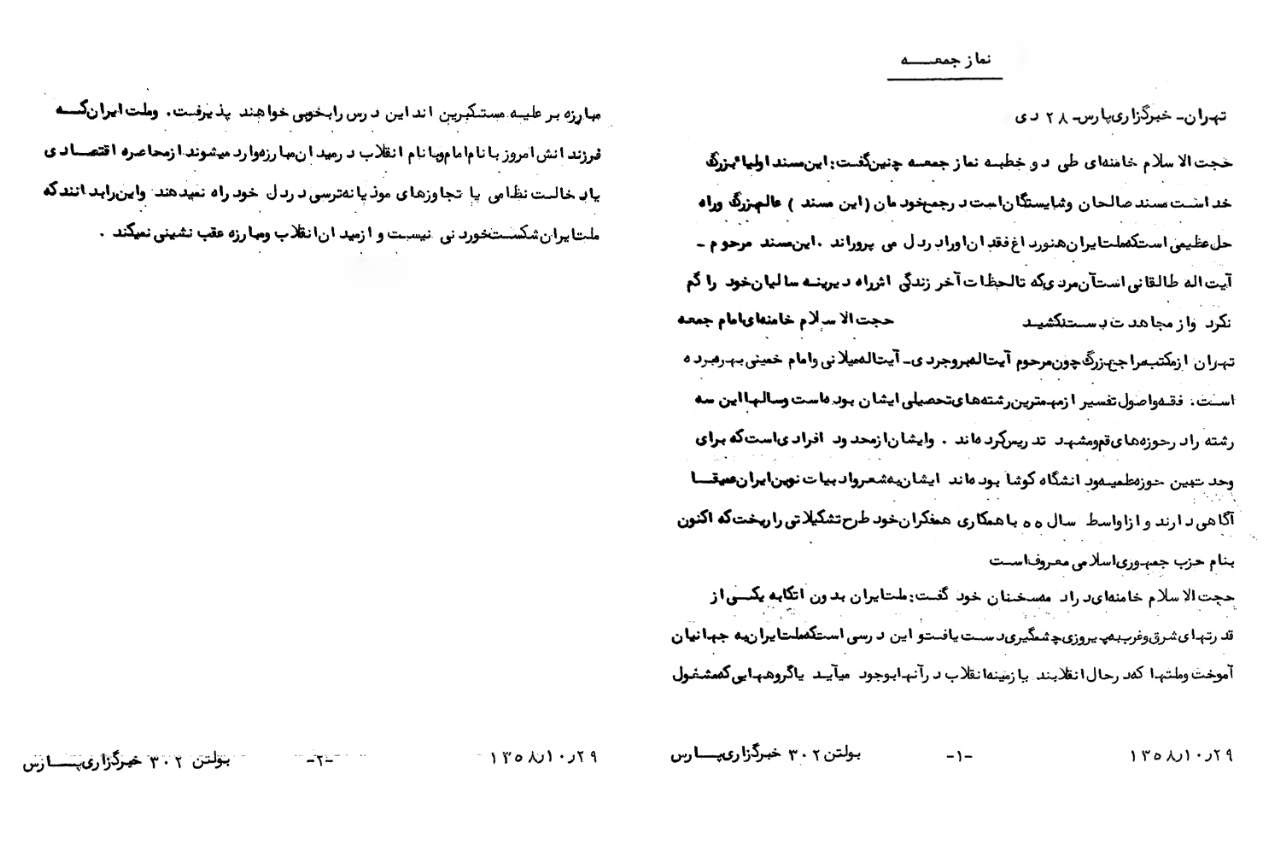 نماز جمعـــه
تهران - خبرگزاری پارس - ۲۸ دی
حجت الاسلام خامنه‌ای طی دو خطبه نماز جمعه چنین گفت: این مسند اولیاء بزرگ
خداست مسند صالحان وشایستگان است در جمع خودمان (این مسند ) عالم بزرگ وراه
حل عظیمی است که ملت ایران هنوز داغ فقدان اورا بردل می پروراند . این مسند مرحوم -
آیت اله طالقانی است آن مردی که تا لحظات آخر زندگی اش راه دیرینه سالیان خود را گم
نکرد واز مجاهدت دست نکشید      حجت الاسلام خامنه‌ای امام جمعه
تهران ازمکتب مراجع بزرگ چون مرحوم آیت اله بروجردی - آیت اله میلانی وامام خمینی بهره برده
است. فقه واصول تفسیر ازمهمترین رشته‌های تحصیلی ایشان بوده است وسالها این سه
رشته را در حوزه‌های قم ومشهد تدریس کرده‌اند . وایشان از محدود افرادی است که برای
وحدت بین حوزه علمیه ودانشگاه کوشا بوده‌اند ایشان به شعر وادبیات نوین ایران عمیقـا
آگاهی دارند و از اواسط سال ۵۵ با همکاری همفکران خود طرح تشکیلاتی را ریخت که اکنون
بنام حزب جمهوری اسلامی معروف است
حجت الاسلام خامنه‌ای در ادامه سخنان خود گفت: ملت ایران بدون اتکا به یکـی از
قدرتهای شرق وغرب به پیروزی چشمگیری دست یافت و این درسی است که ملت ایران به جهانیان
آموخت وملتها که در حال انقلابند یا زمینه انقلاب در آنها بوجود میآید یا گروههایی که مشغول
۱۳۵۸٫۱۰٫۲۹      -۱-      بولتن ۳۰۲ خبرگزاری پـــارس
مبارزه بر علیه مستکبرین اند این درس را بخوبی خواهند پذیرفت. وملت ایران کـــه
فرزندانش امروز با نام امام وبا نام انقلاب در میدان مبارزه وارد میشوند از محاصره اقتصادی
یا دخالت نظامی یا تجاوزهای موذیانه ترسی در دل خود راه نمیدهند واین را بدانند که
ملت ایران شکست خوردنی نیست و از میدان انقلاب ومبارزه عقب نشینی نمیکند .
۱۳۵۸٫۱۰٫۲۹      -۲-      بولتن ۳۰۲ خبرگزاری پـــارس